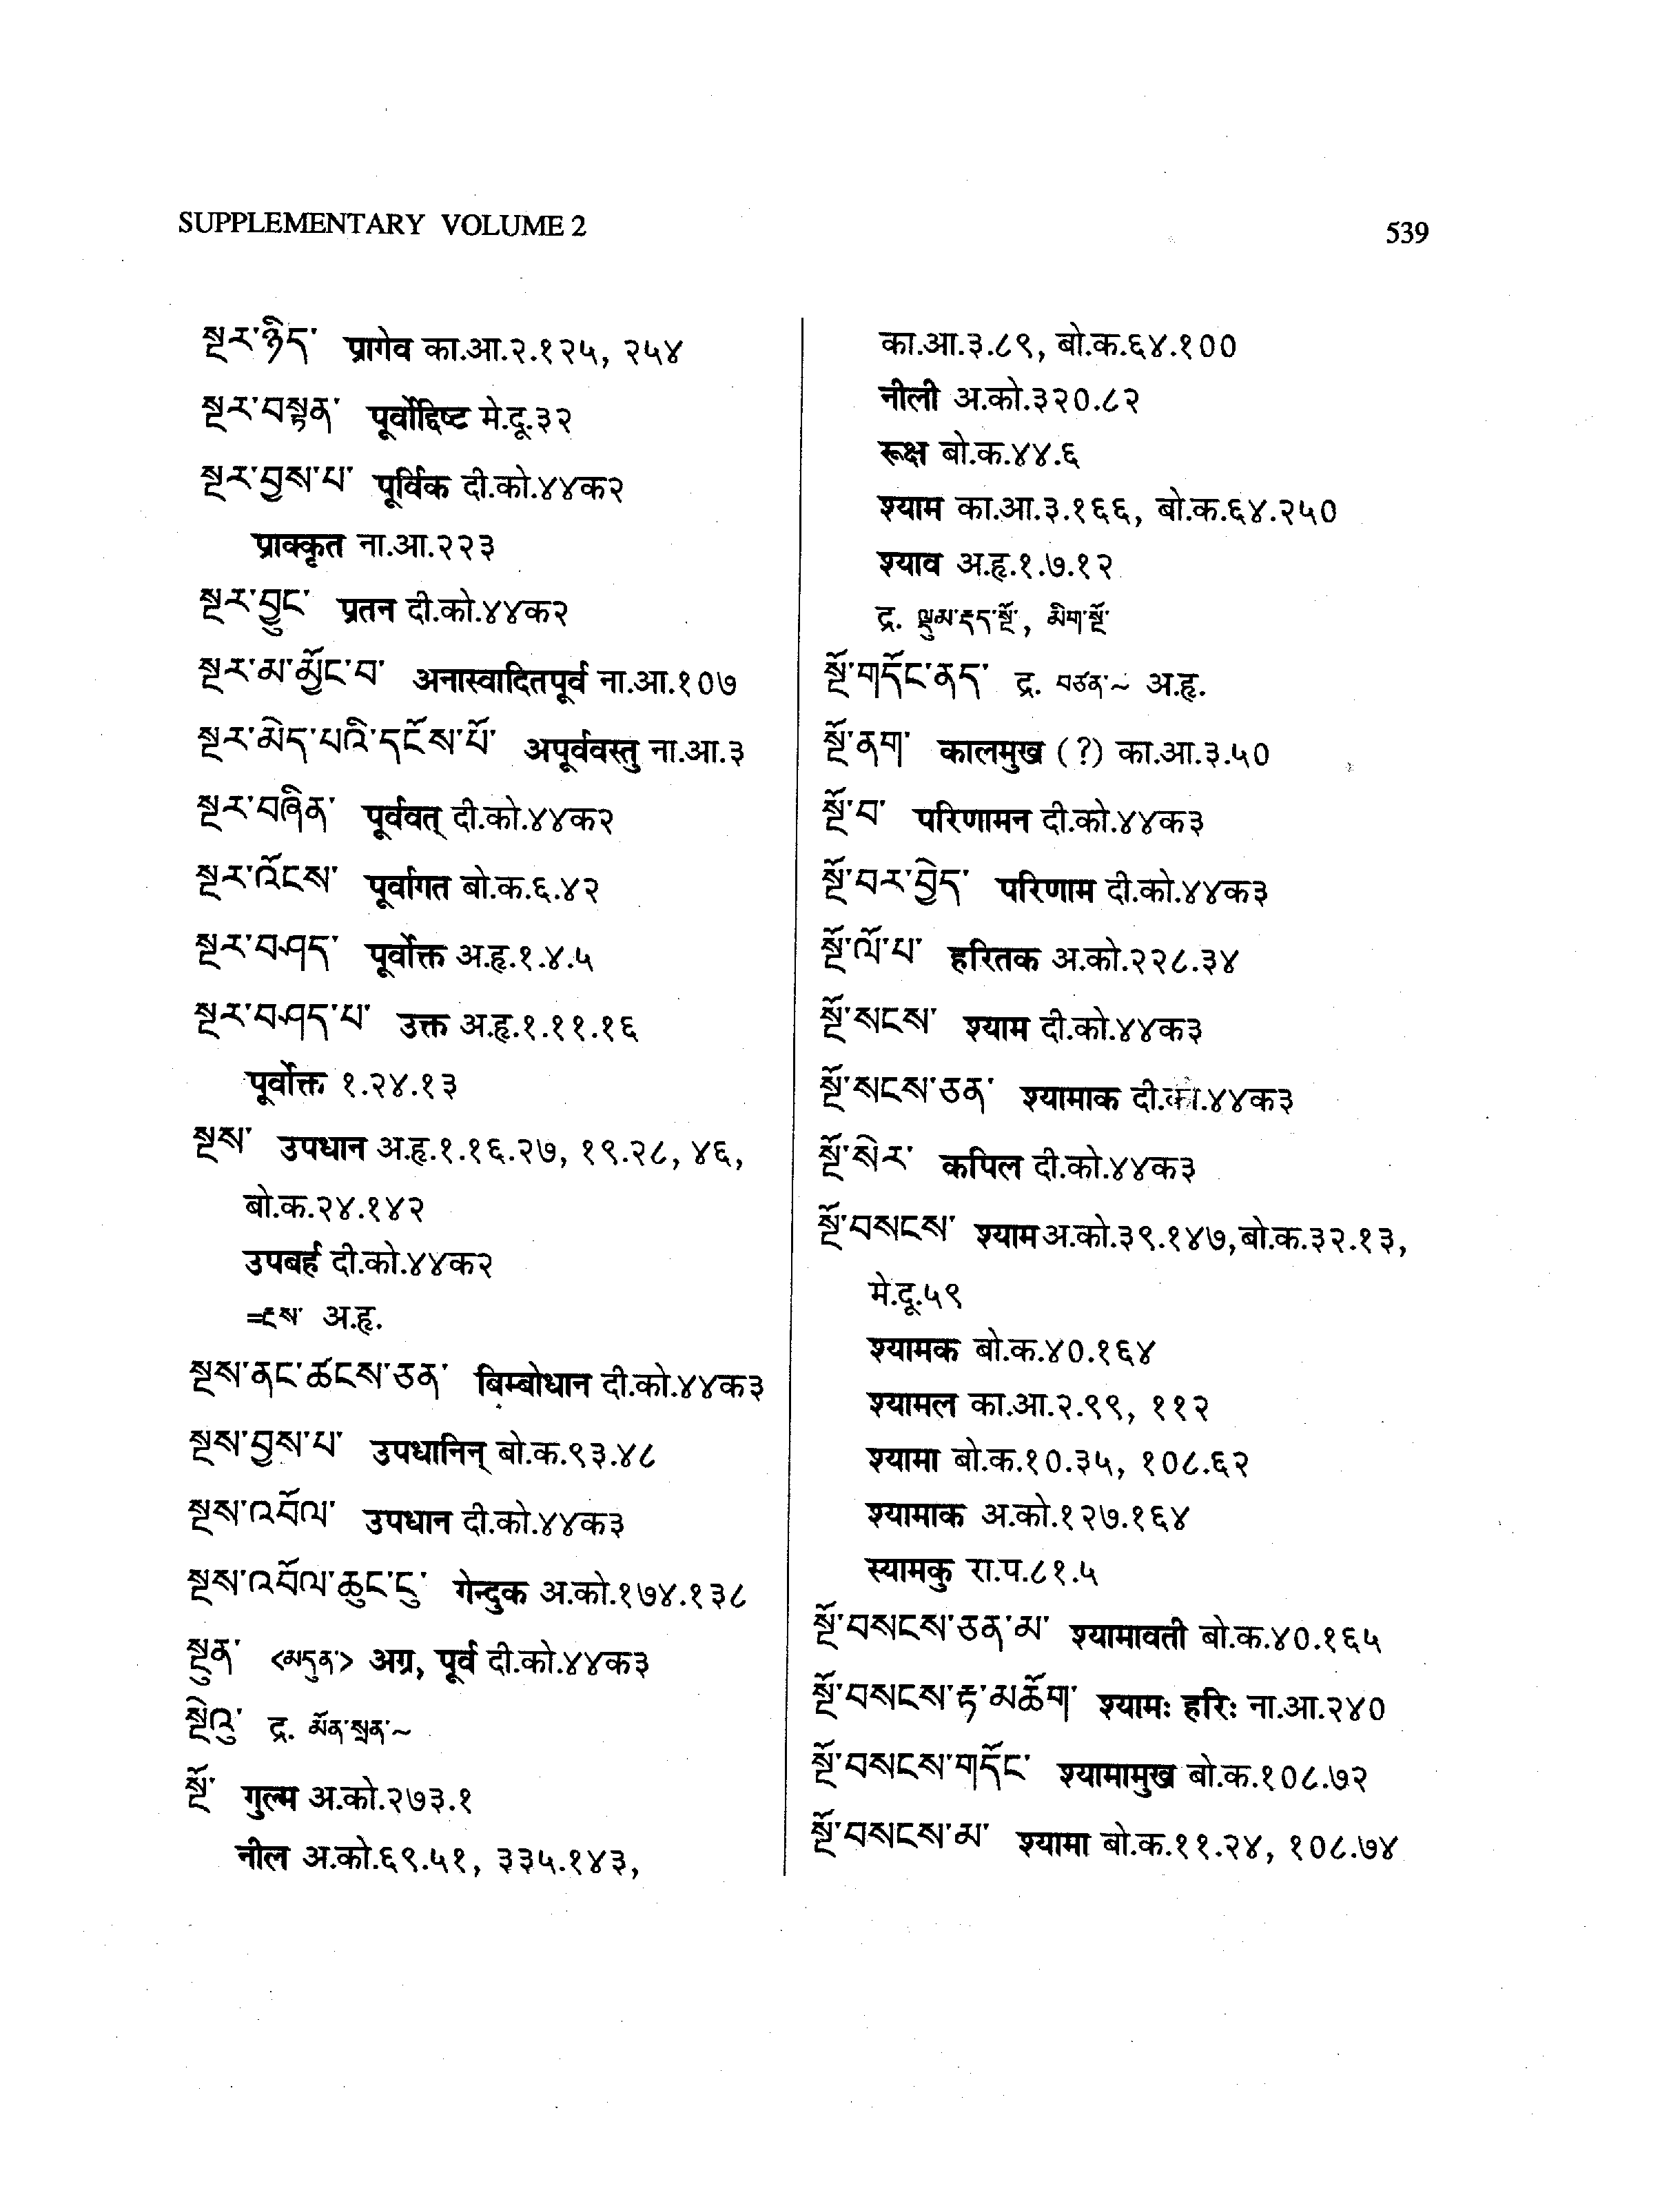 SUPPLEMENTARY VOLUME 2
539
སྔར་ཉིད་ प्रागेव का.आ.२.१२५, २५४
སྔར་བསྟན་ पूर्वोद्दिष्ट मे.दू.३२
སྔར་བྱས་པ་ पूर्विक दी.को.४४क२
प्राक्कृत ना.आ.२२३
སྔར་བྱུང་ प्रतन दी.को.४४क२
སྔར་མ་མྱོང་བ་ अनास्वादितपूर्व ना.आ.१०७
སྔར་མེད་པའི་དངོས་པོ་ अपूर्ववस्तु ना.आ.३
སྔར་བཞིན་ पूर्ववत् दी.को.४४क२
སྔར་འོངས་ पूर्वागत बो.क.६.४२
སྔར་བཤད་ पूर्वोक्त अ.हृ.१.४.५
སྔར་བཤད་པ་ उक्त अ.हृ.१.११.१६
पूर्वोक्त १.२४.१३
སྔས་ उपधान अ.हृ.१.१६.२७, १९.२८, ४६,
बो.क.२४.१४२
उपबर्ह दी.को.४४क२
=ངས་ अ.हृ.
སྔས་ནང་ཚངས་ཅན་ बिम्बोधान दी.को.४४क३
སྔས་བྱས་པ་ उपधानिन् बो.क.९३.४८
སྔས་འབོལ་ उपधान दी.को.४४क३
སྔས་འབོལ་ཆུང་ངུ་ गेन्दुक अ.को.१७४.१३८
སྔུན་ <མདུན་> अग्र, पूर्व दी.को.४४क३
སྔེའུ་ द्र. མོན་སྲན་~
སྔོ་ गुल्म अ.को.२७३.१
नील अ.को.६९.५१, ३३५.१४३,
का.आ.३.८९, बो.क.६४.१००
नीली अ.को.३२०.८२
रूक्ष बो.क.४४.६
श्याम का.आ.३.१६६, बो.क.६४.२५०
श्याव अ.हृ.१.७.१२
द्र. ལྡུམ་རྡད་སྔོ་, མིག་སྔོ་
སྔོ་གདོང་ནད་ द्र. བཙན་~ अ.हृ.
སྔོ་ནག་ कालमुख (?) का.आ.३.५०
སྔོ་བ་ परिणामन दी.को.४४क३
སྔོ་བར་བྱེད་ परिणाम दी.को.४४क३
སྔོ་ལོ་པ་ हरितक अ.को.२२८.३४
སྔོ་སངས་ श्याम दी.को.४४क३
སྔོ་སངས་ཅན་ श्यामाक दी.को.४४क३
སྔོ་སེར་ कपिल दी.को.४४क३
སྔོ་བསངས་ श्याम अ.को.३९.१४७, बो.क.३२.१३,
मे.दू.५९
श्यामक बो.क.४०.१६४
श्यामल का.आ.२.९९, ११२
श्यामा बो.क.१०.३५, १०८.६२
श्यामाक अ.को.१२७.१६४
स्यामकु रा.प.८१.५
སྔོ་བསངས་ཅན་མ་ श्यामावती बो.क.४०.१६५
སྔོ་བསངས་རྟ་མཆོག་ श्यामः हरिः ना.आ.२४०
སྔོ་བསངས་གདོང་ श्यामामुख बो.क.१०८.७२
སྔོ་བསངས་མ་ श्यामा बो.क.११.२४, १०८.७४